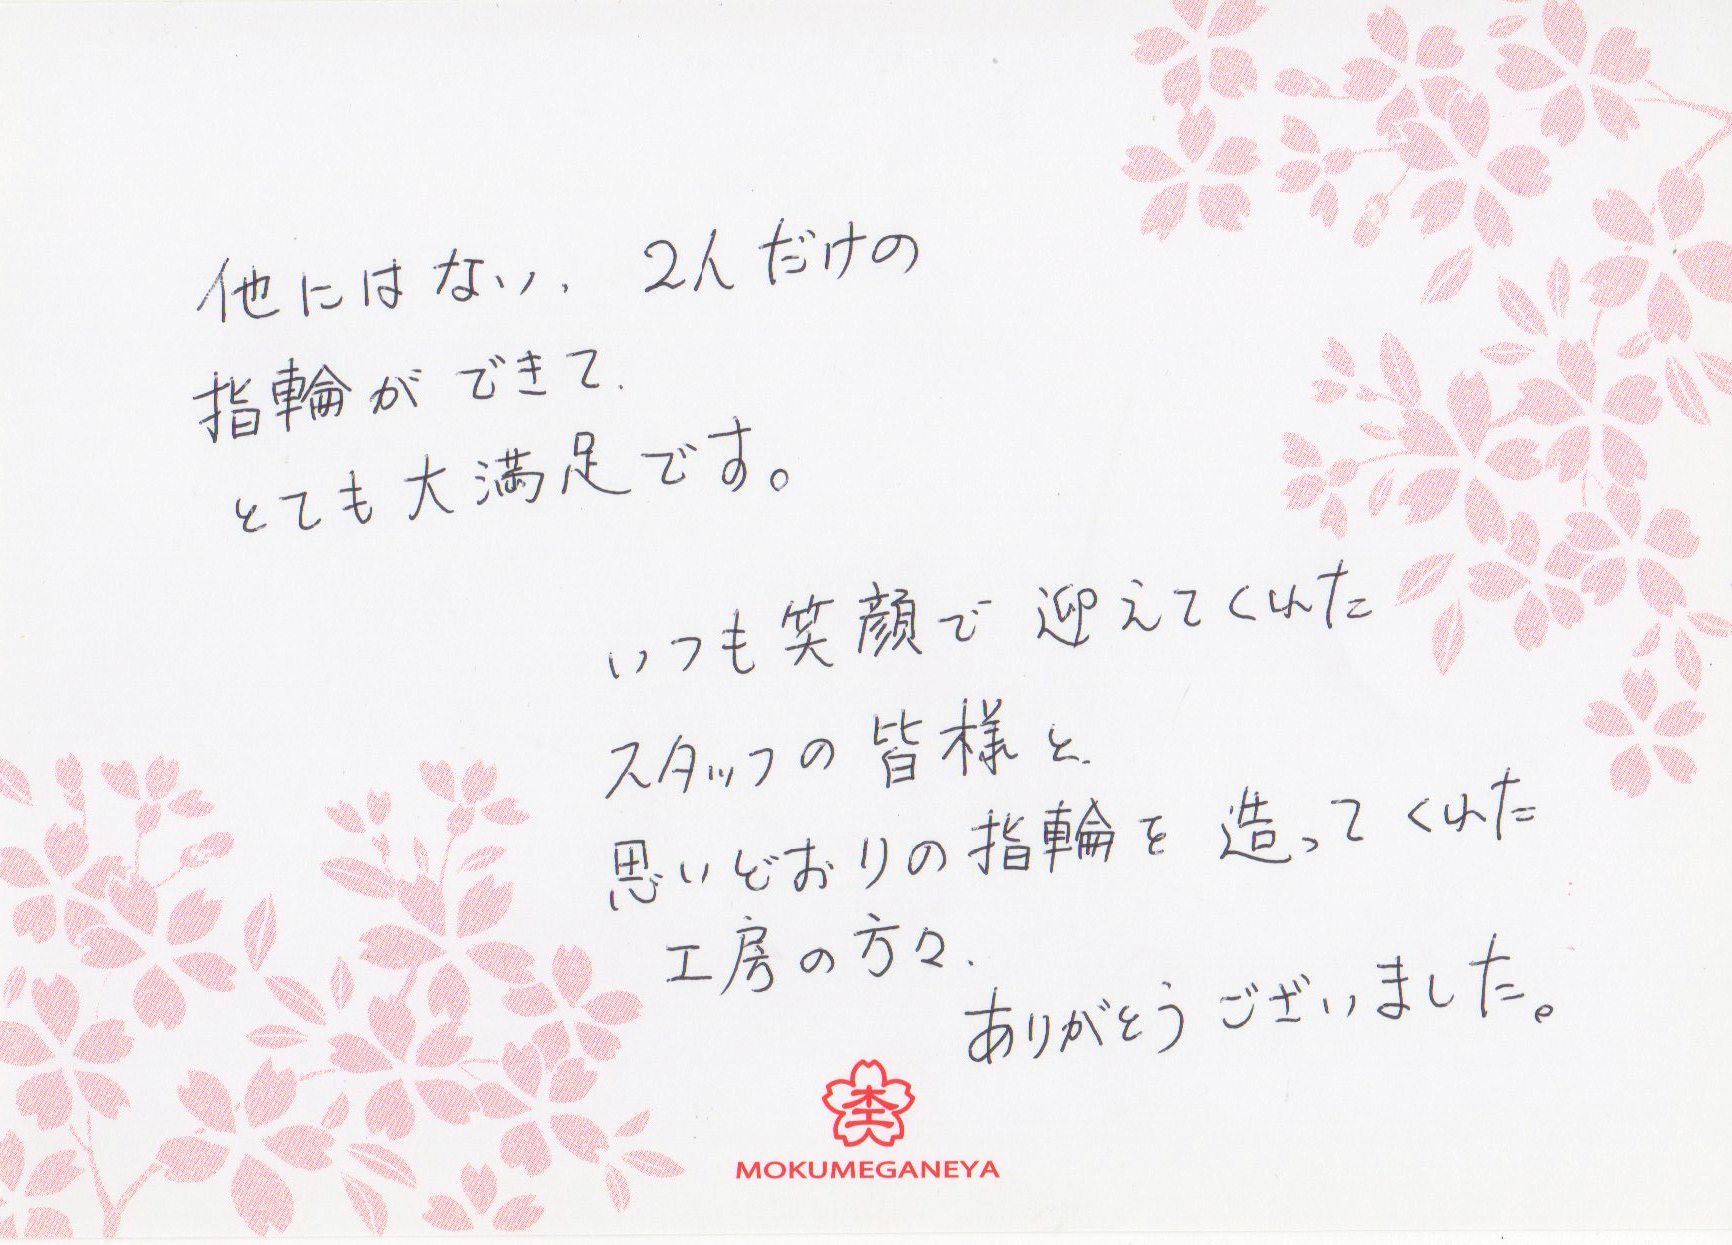 他にはない、2人だけの
指輪ができて、
とても大満足です。
いつも笑顔で迎えてくれた
スタッフの皆様と、
思いどおりの指輪を造ってくれた
工房の方々、
ありがとうございました。
MOKUMEGANEYA